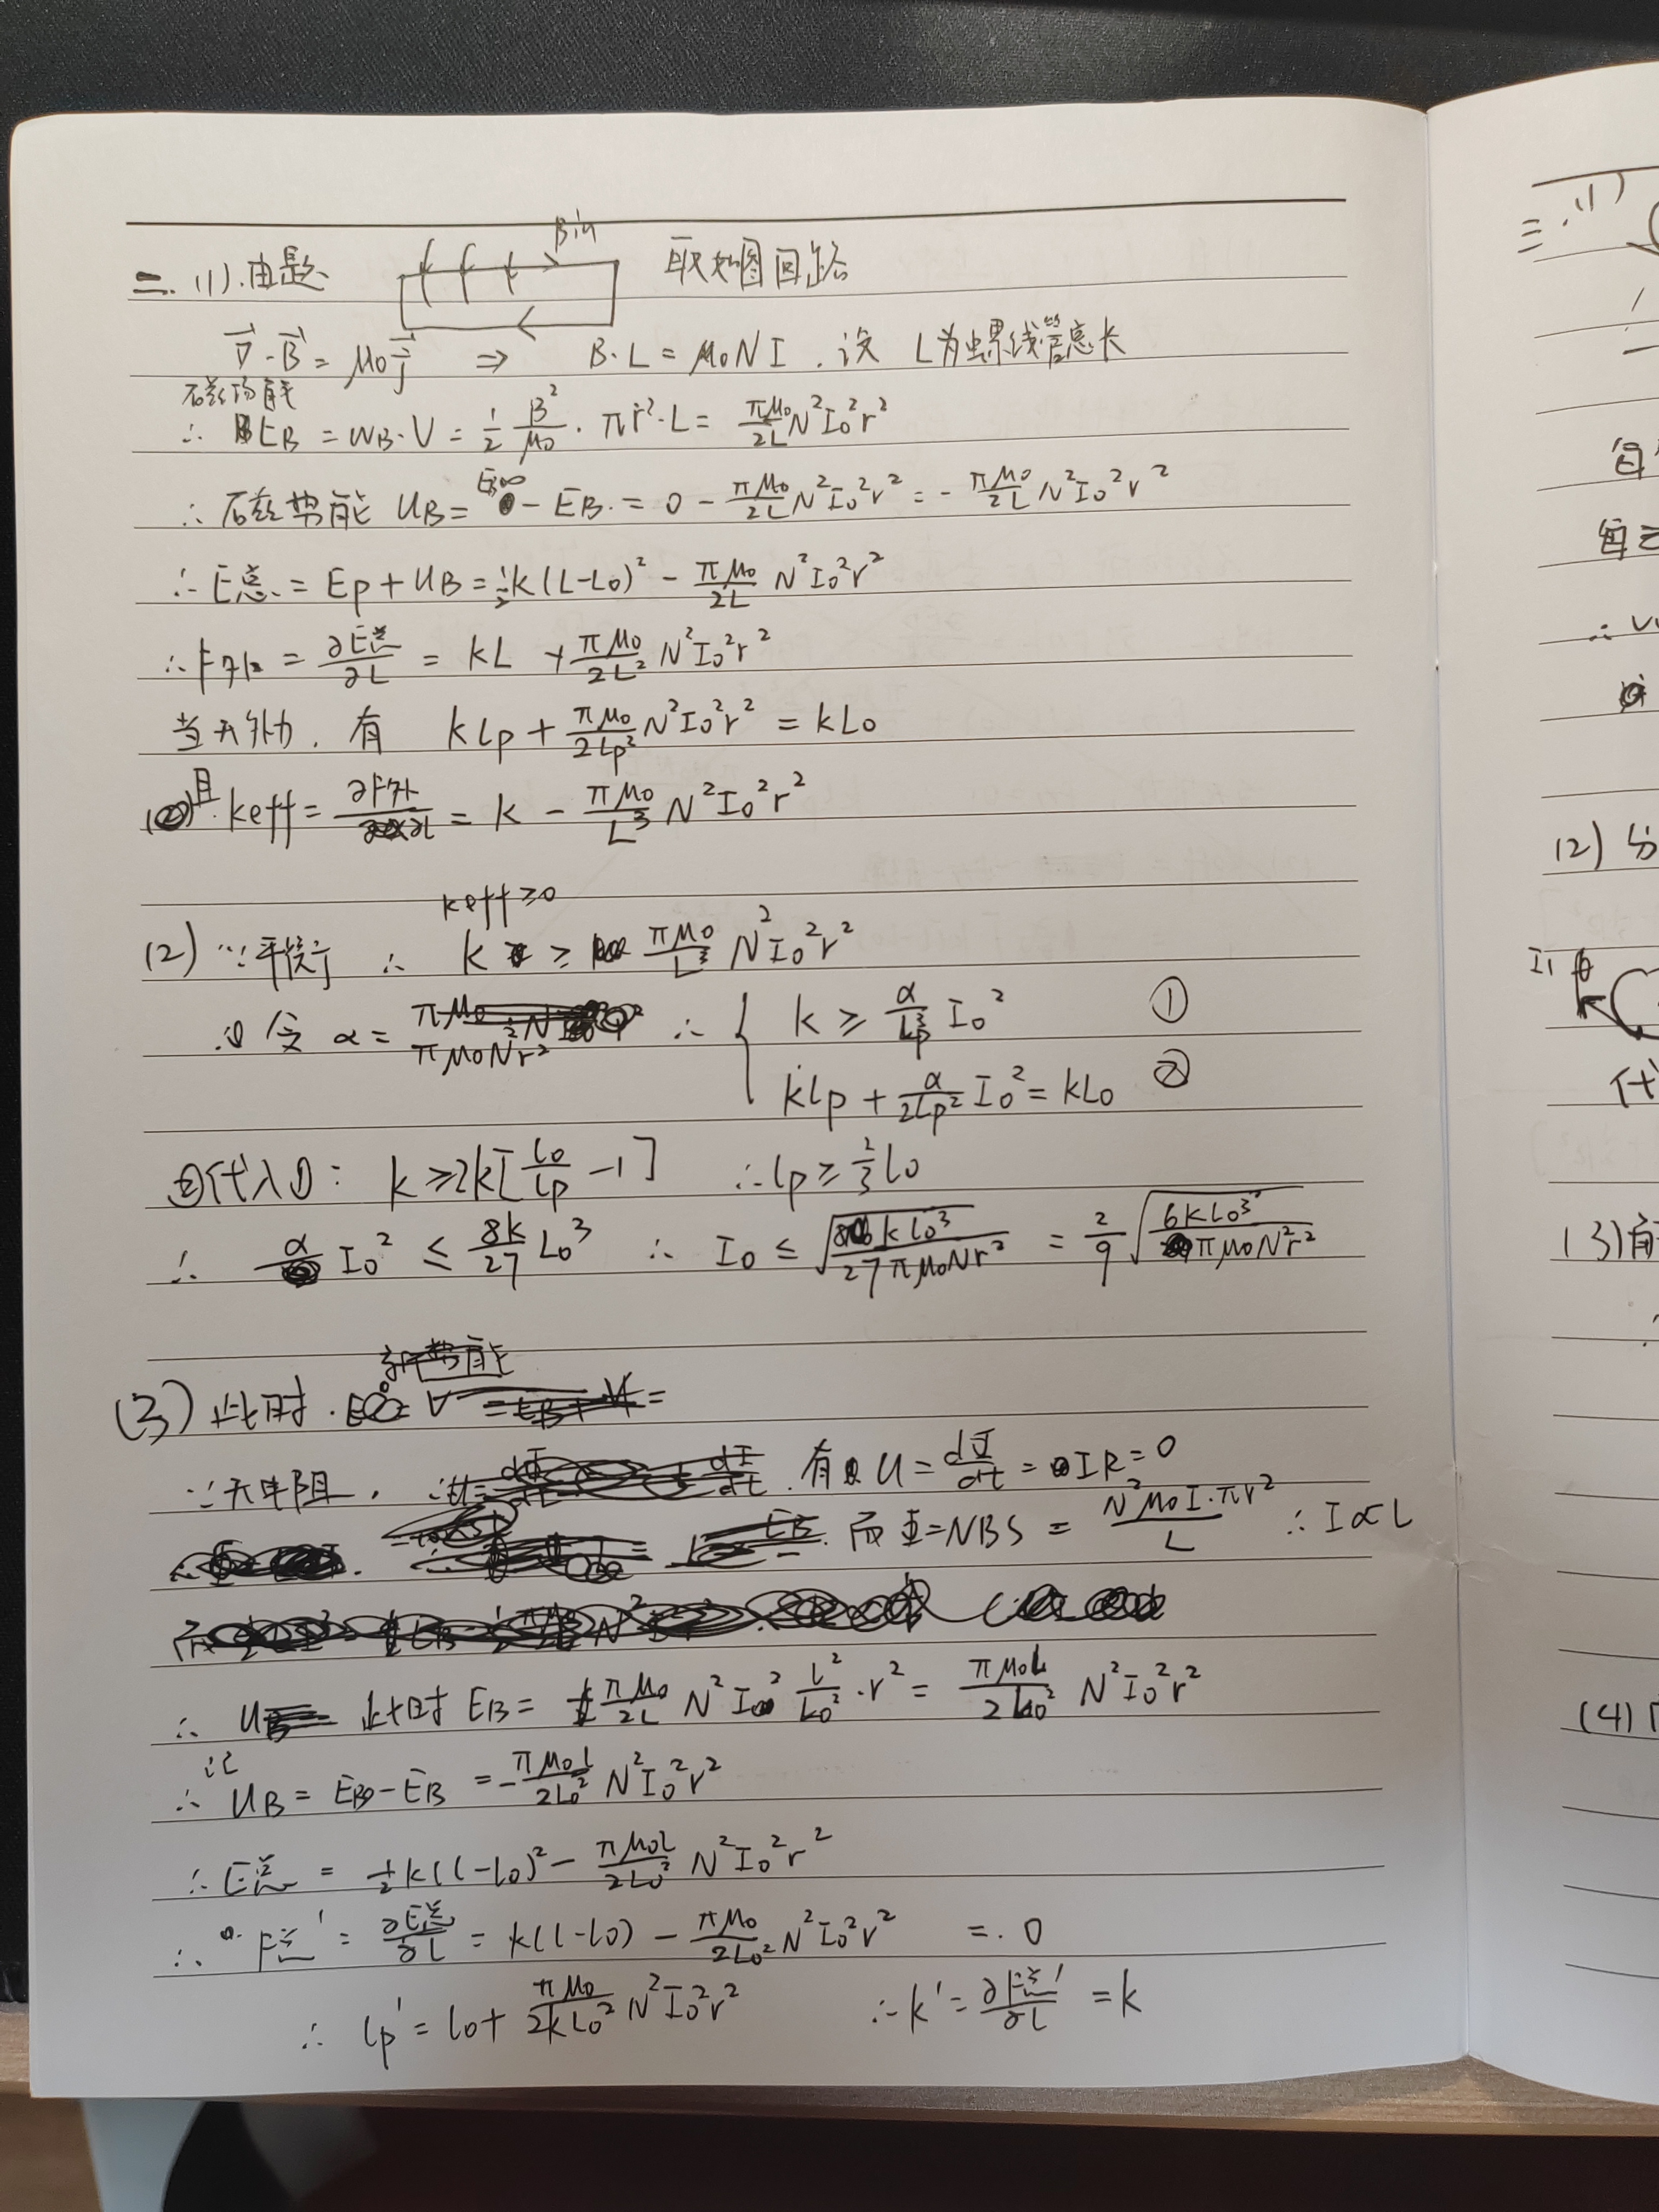 二. (1). 由题 Bin 取如图回路
∇·B = μ0 j ⇒ B·L = μ0NI . 设 L为螺线管总长
磁场能
∴ EB = wB·V = 1/2 B²/μ0 · πr²·L = πμ0/2L N²I0²r²
∴ 磁势能 UB = EB∞ - EB. = 0 - πμ0/2L N²I0²r² = - πμ0/2L N²I0²r²
∴ E总 = Ep + UB = 1/2 k(L-L0)² - πμ0/2L N²I0²r²
∴ F外 = ∂E总/∂L = kL + πμ0/2L² N²I0²r²
当无外力. 有 klp + πμ0/2lp² N²I0²r² = kL0
且 keff = ∂F外/∂L = k - πμ0/L³ N²I0²r²
keff ≥ 0
(2) ∵平衡 ∴ k ≥ πμ0/L³ N²I0²r²
令 α = πμ0Nr² ∴ { k ≥ α/Lp³ I0² ①
klp + α/2Lp² I0² = kL0 ②
②代入①: k ≥ 2k[l0/lp - 1] ∴ lp ≥ 2/3 l0
∴ α I0² ≤ 8k/27 L0³ ∴ I0 ≤ √(8kl0³/27πμ0Nr²) = 2/9 √(6kl0³/πμ0N²r²)
(3) 此时.
∵无电阻, 有 U = dΦ/dt = IR = 0
而 Φ = NBS = N²μ0I·πr²/L ∴ I∝L
∴ 此时 EB = πμ0/2L N²I0² L²/L0² ·r² = πμ0L/2L0² N²I0²r²
∴ 记 UB = EB0 - EB = - πμ0l/2L0² N²I0²r²
∴ E总 = 1/2 k(l-l0)² - πμ0l/2L0² N²I0²r²
∴ F总' = ∂E总/∂L = k(l-l0) - πμ0/2L0² N²I0²r² = 0
∴ lp' = l0 + πμ0/2kL0² N²I0²r² ∴ k' = ∂F总'/∂L = k
三.(1)
(2) 分
I1
(3)
(4)